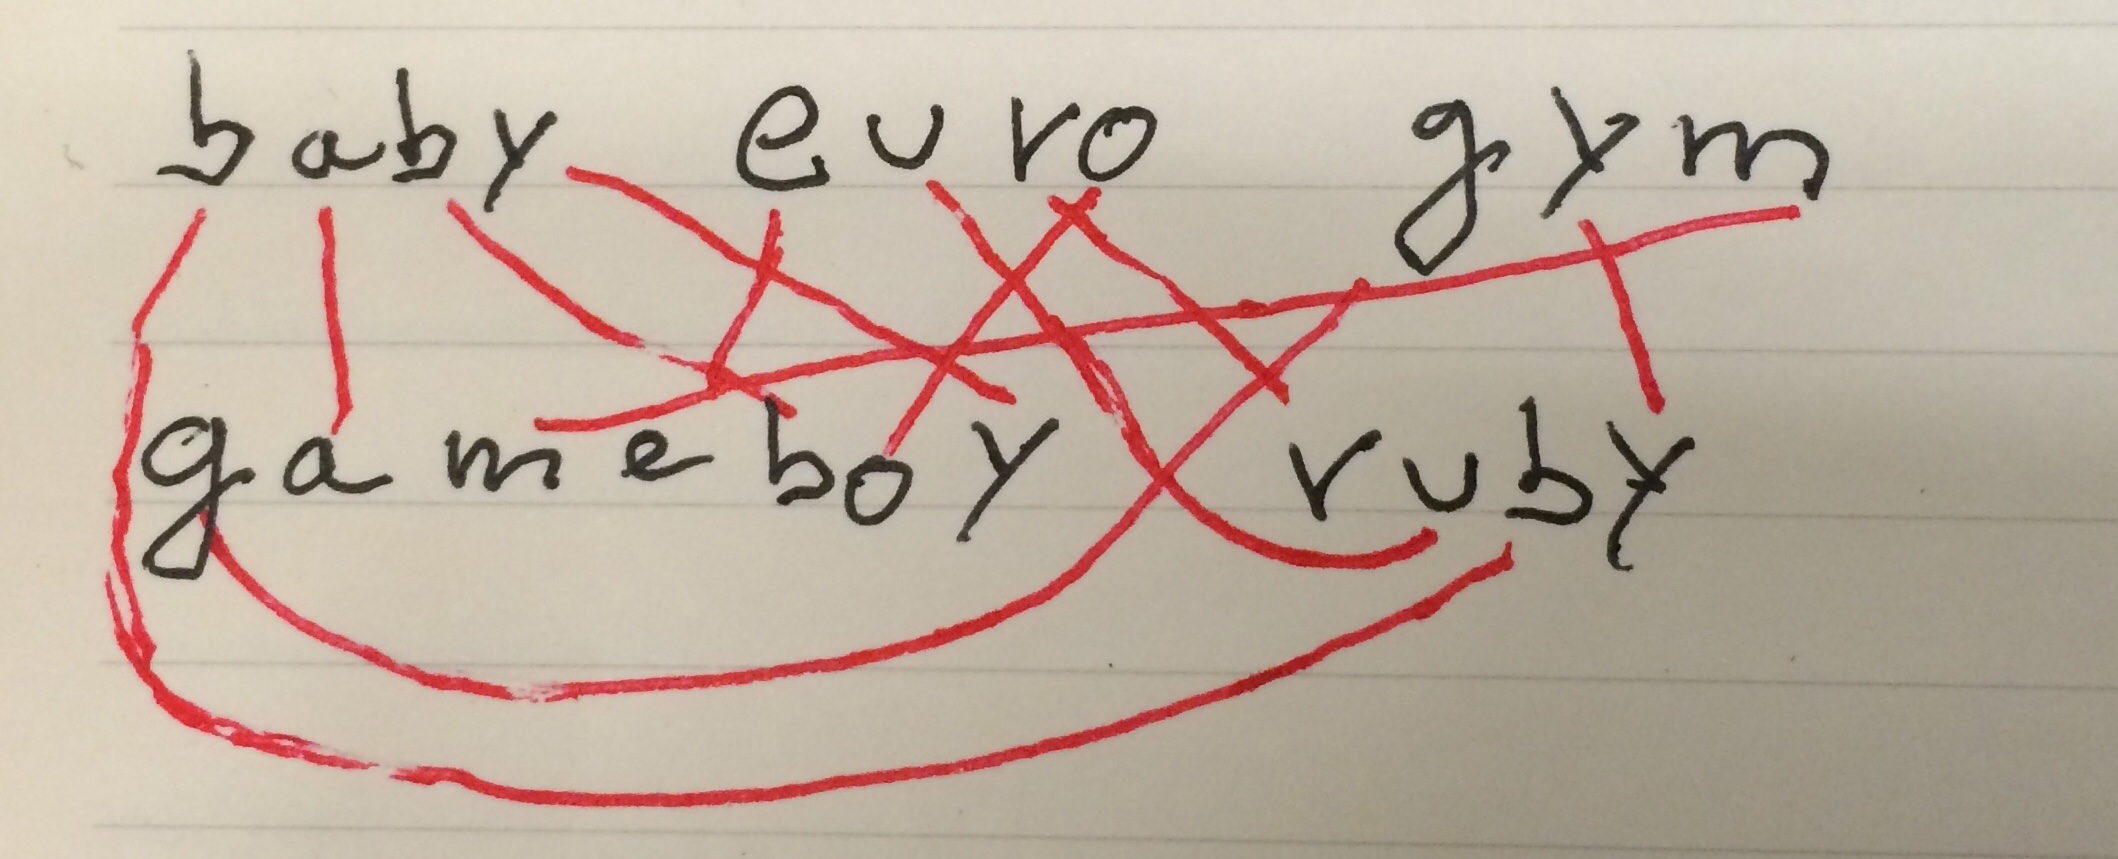 baby euro gym
gameboy ruby